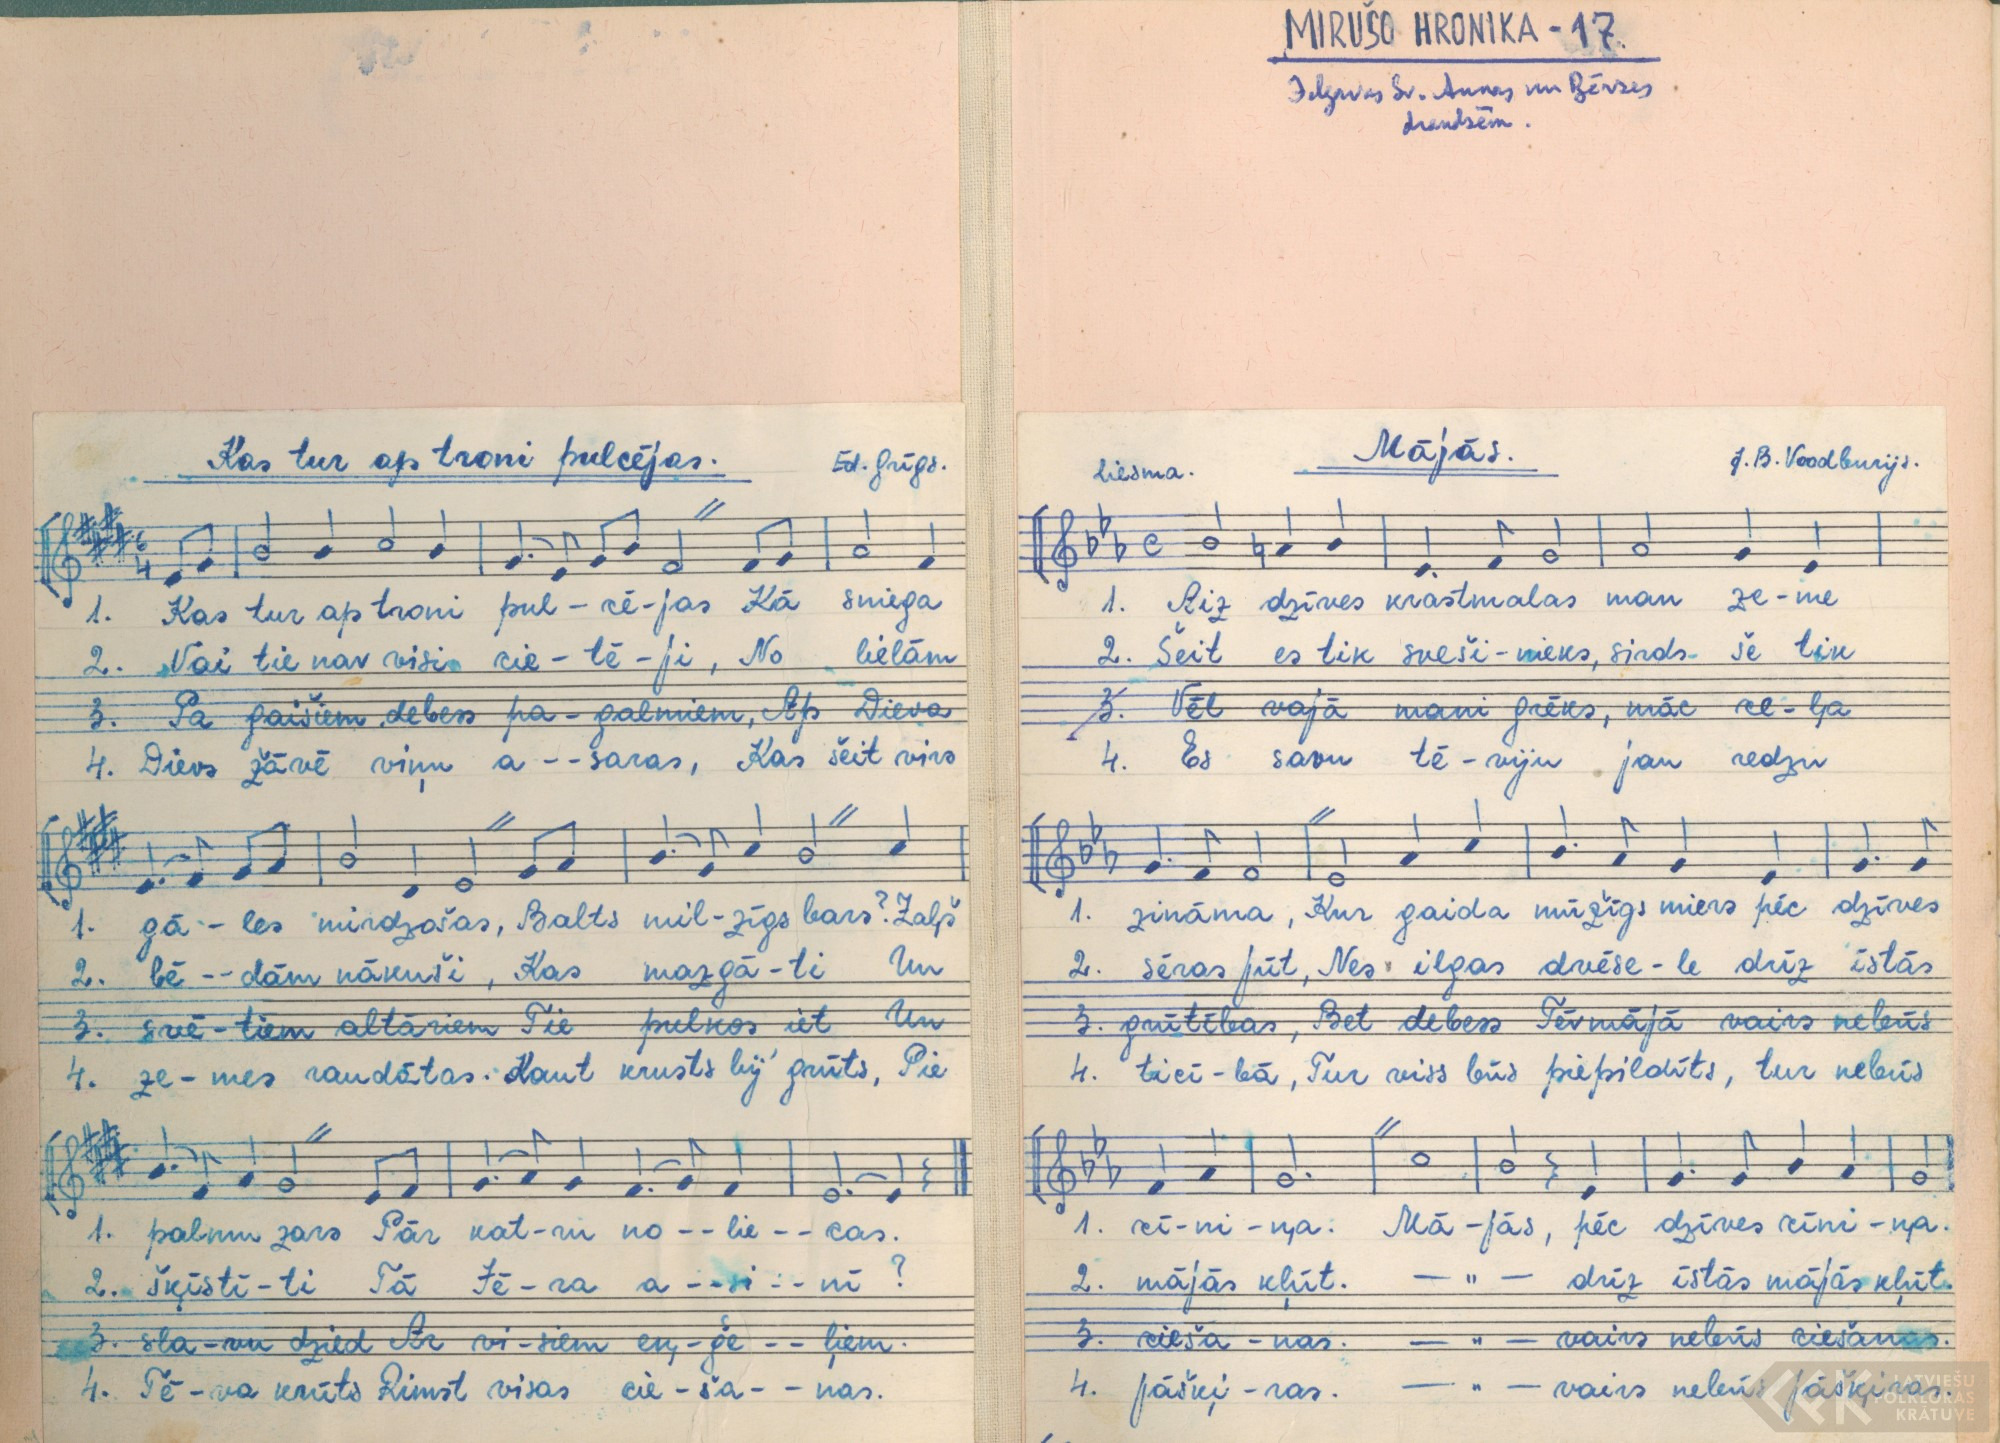 MIRUŠO HRONIKA - 17.
Jelgavas Sv. Annas un Bērzes
draudzēm.
Kas tur ap troni pulcējas.
Ed. Grīgs.
6
4
1. Kas tur ap troni pul - cē - jas Kā sniega
2. Vai tie nav visi cie - tē - ji, No lielām
3. Pa gaišiem debess pa - galmiem, Ap Dieva
4. Dievs žāvē viņu a - - saras, Kas šeit virs
1. gā - - les mirdzošas, Balts mil - zīgs bars? Zaļš
2. bē - - dām nākuši, Kas mazgā - ti Un
3. svē - tiem altāriem Tie pulkos iet Un
4. ze - mes raudātas. Kaut krusts bij' grūts, Pie
1. palmu zars Pār kat - ru no - - lie - - cas.
2. šķīstī - ti Tā Jē - ra a - - si - - nī ?
3. sla - vu dzied Ar vi - siem eņ - ģe - - ļiem.
4. Tē - va krūts Rimst visas cie - ša - - nas.
Liesma.
Mājās.
J. B. Voodburijs.
1. Aiz dzīves krastmalas man ze - me
2. Šeit es tik sveši - nieks, sirds še tik
3. Vēl vajā mani grēks, māc ce - ļa
4. Es savu tē - viju jau redzu
1. zināma, Kur gaida mūžīgs miers pēc dzīves
2. sēras jūt, Nes ilgas dvēse - le drīz īstās
3. grūtības, Bet debess Tēvmājā vairs nebūs
4. ticī - bā, Tur viss būs piepildīts, tur nebūs
1. cī - ni - ņa: Mā - jās, pēc dzīves cīni - ņa.
2. mājās kļūt. — " — drīz īstās mājās kļūt.
3. cieša - nas. — " — vairs nebūs ciešanas.
4. jāšķi - ras. — " — vairs nebūs jāšķiras.
LATVIEŠU
FOLKLORAS
KRĀTUVE